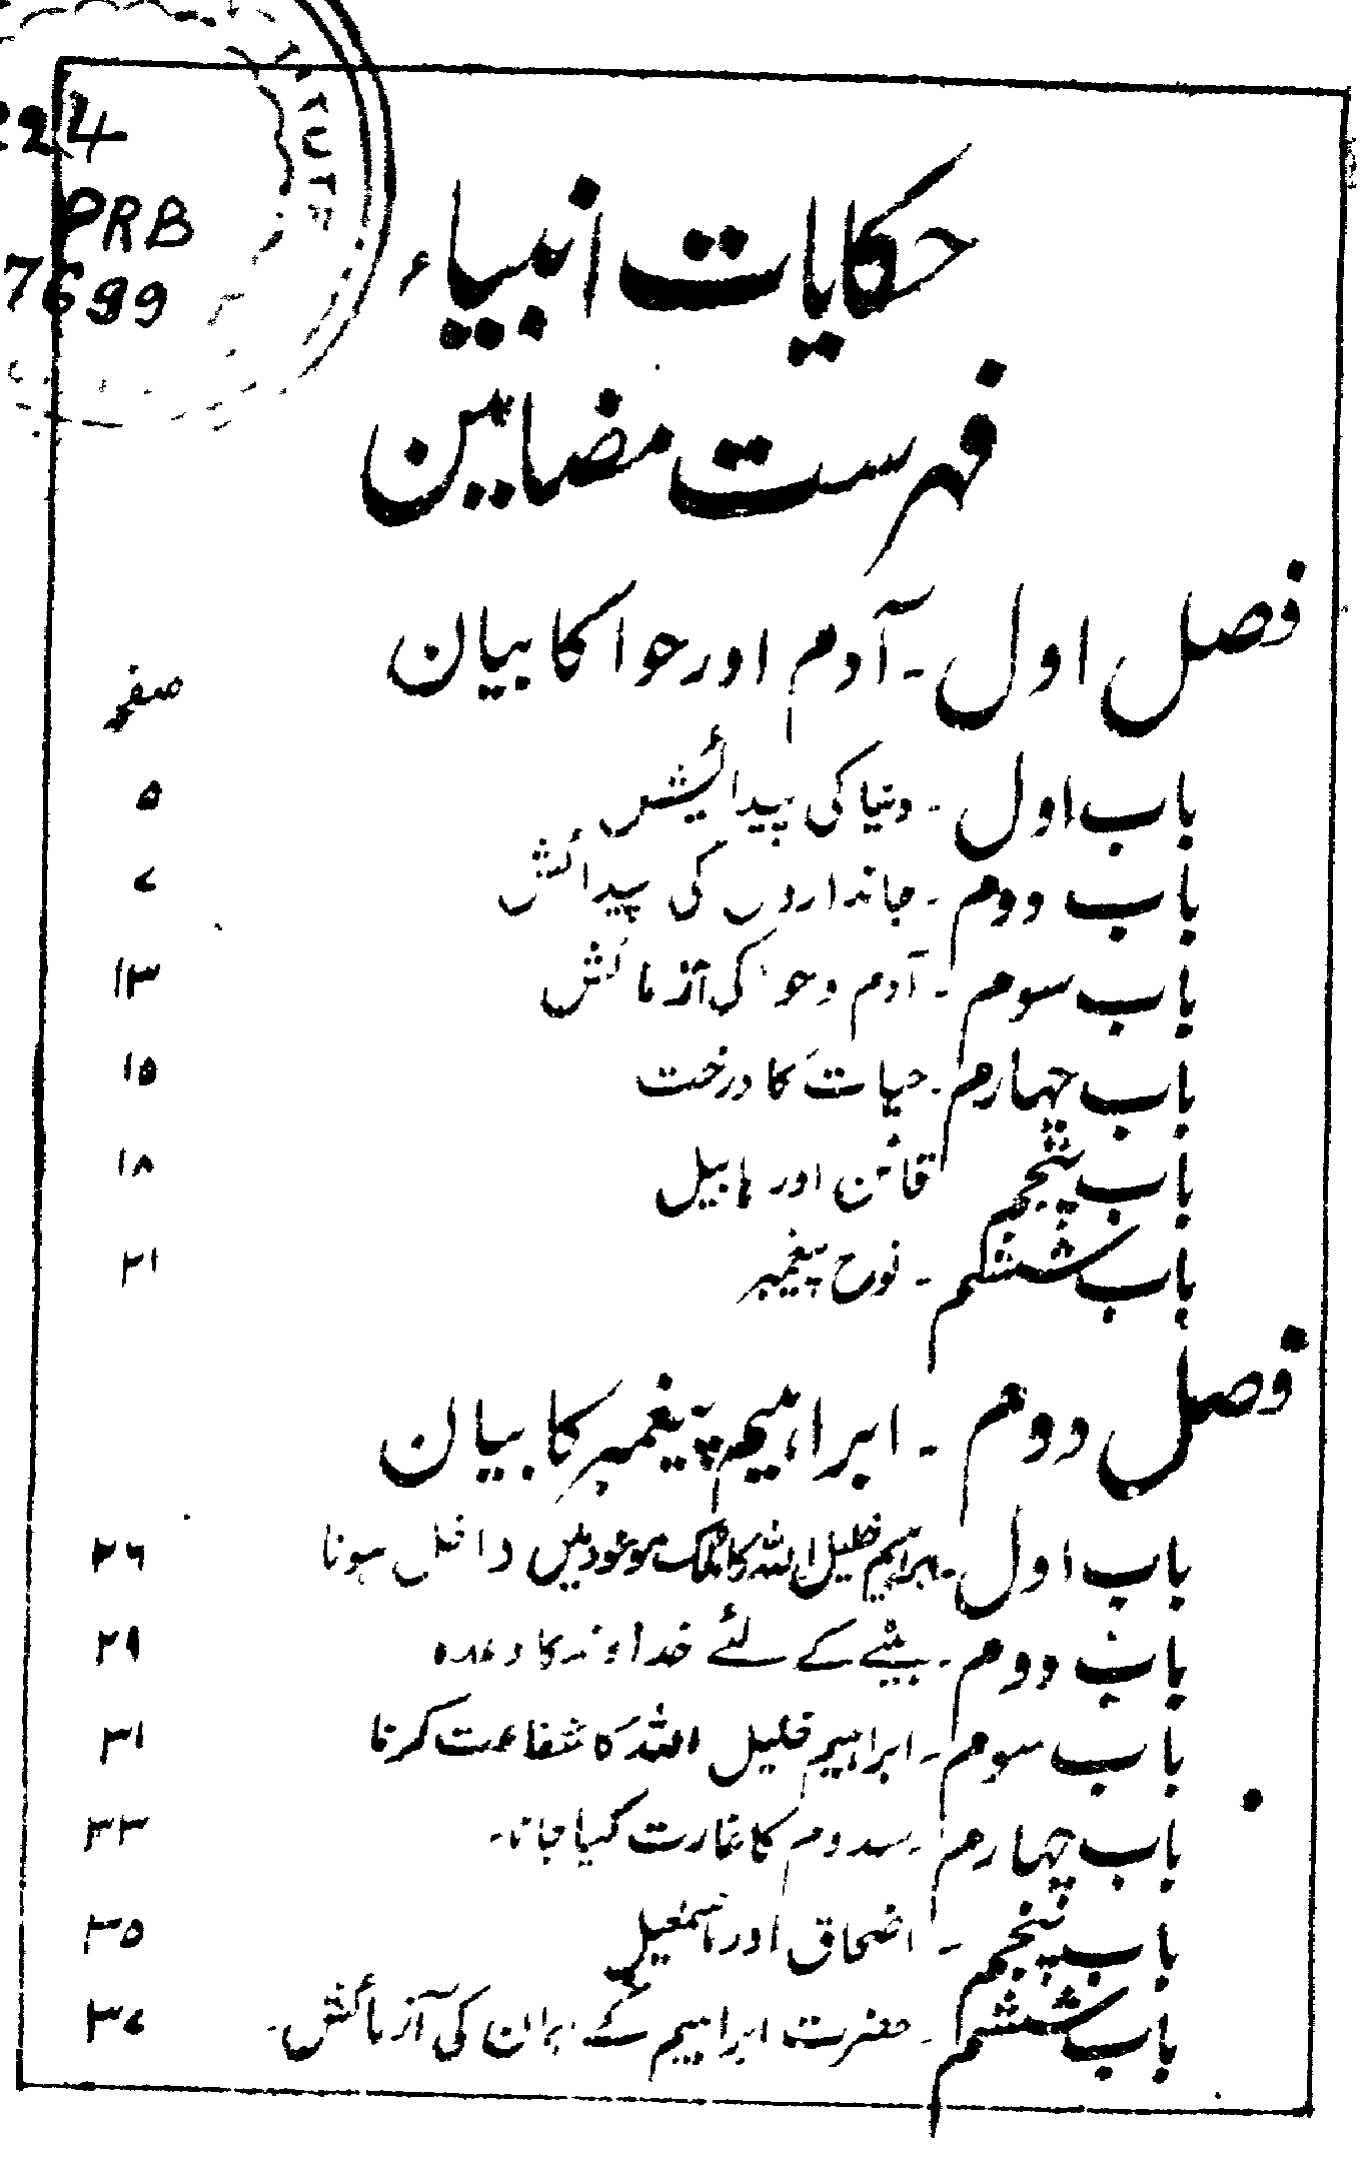 224
PRB
7699
TUTE
حکایات انبیاء
فہرست مضامین
فصل اول ۔ آدم اور حوا کا بیان
صفحہ
باب اول ۔ دنیا کی پیدائیش ۵
باب دوم ۔ جانداروں کی پیدائش ۷
باب سوم ۔ آدم و حوا کی آزمائش ۱۳
باب چہارم ۔ حیات کا درخت ۱۵
باب پنجم قائن اور ہابیل ۱۸
باب ششم ۔ نوح پیغمبر ۲۱
فصل دوم ۔ ابراہیم پیغمبر کا بیان
باب اول ۔ ابراہیم خلیل اللہ کا ملک موعود میں داخل ہونا ۲۶
باب دوم ۔ بیٹے کے لئے خداوند کا وعدہ ۲۹
باب سوم ۔ ابراہیم خلیل اللہ کا شفاعت کرنا ۳۱
باب چہارم ۔ سدوم کا غارت کیا جانا۔ ۳۳
باب پنجم ۔ اضحاق اور اسمٰعیل ۳۵
باب ششم ۔ حضرت ابراہیم کے ایمان کی آزمائش۔ ۳۷